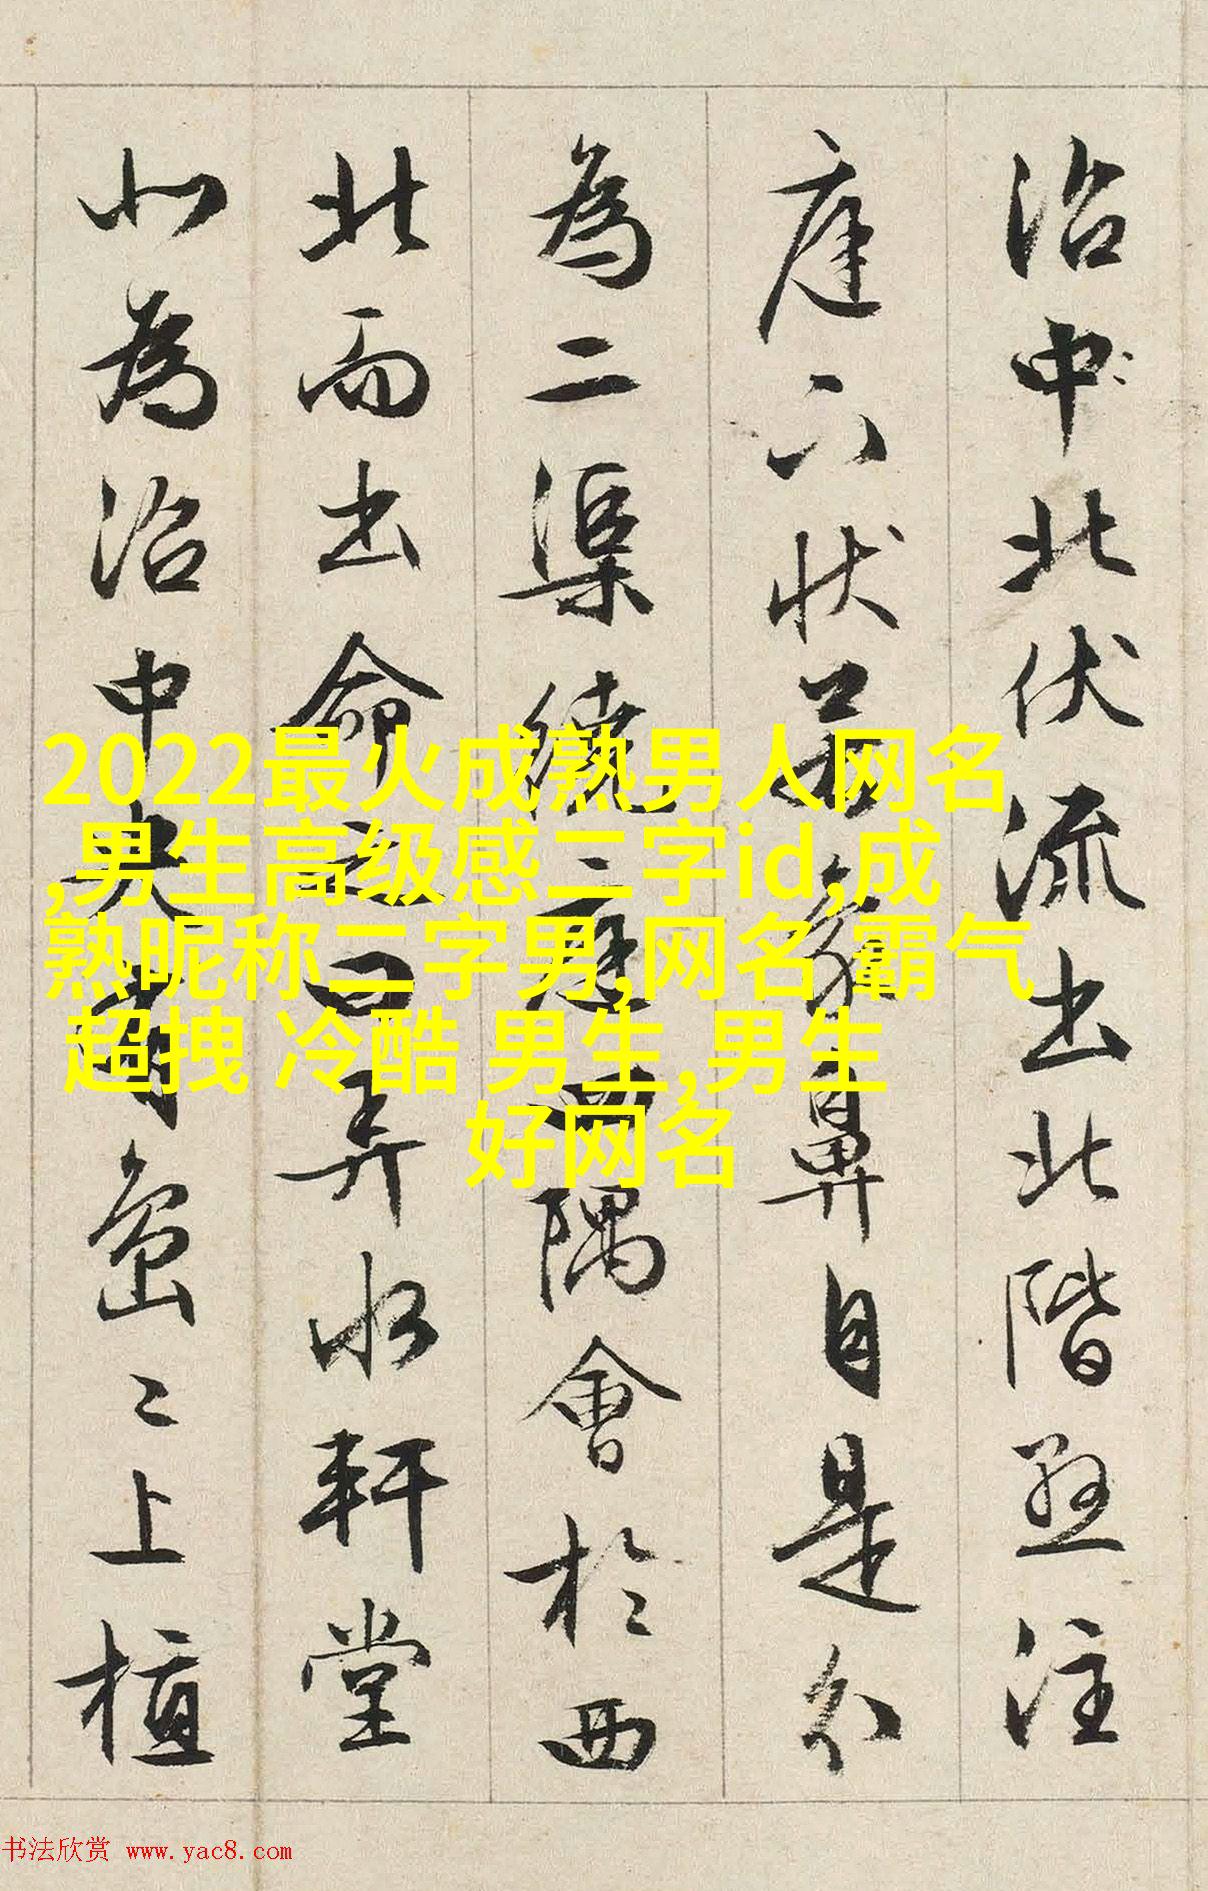 沼中北伏流出北階懸注
庭下狀若象鼻自是分
為二渠繞庭四隅會於西
北而出命之曰弄水軒堂
北為沼中央有島〻上植
2022最火成熟男人网名
,男生高级感二字id,成
熟昵称二字男,网名 霸气
超拽 冷酷 男生,男生
好网名
书法欣赏 www.yac8.com